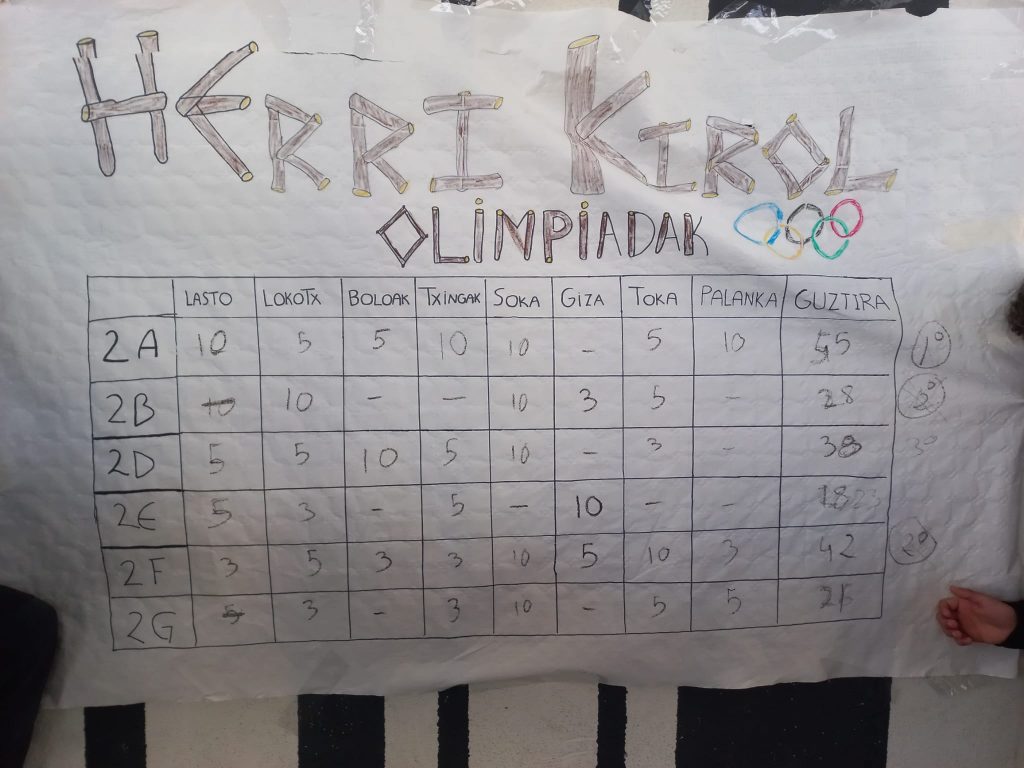 HERRI KIROL
OLIMPIADAK
LASTO LOKOTX BOLOAK TXINGAK SOKA GIZA TOKA PALANKA GUZTIRA
2A 10 5 5 10 10 - 5 10 55 1º
2B 10 10 - - 10 3 5 - 28
2D 5 5 10 5 10 - 3 - 38 3º
2E 5 3 - 5 - 10 - - 23
2F 3 5 3 3 10 5 10 3 42 2º
2G 5 3 - 3 10 - 5 5